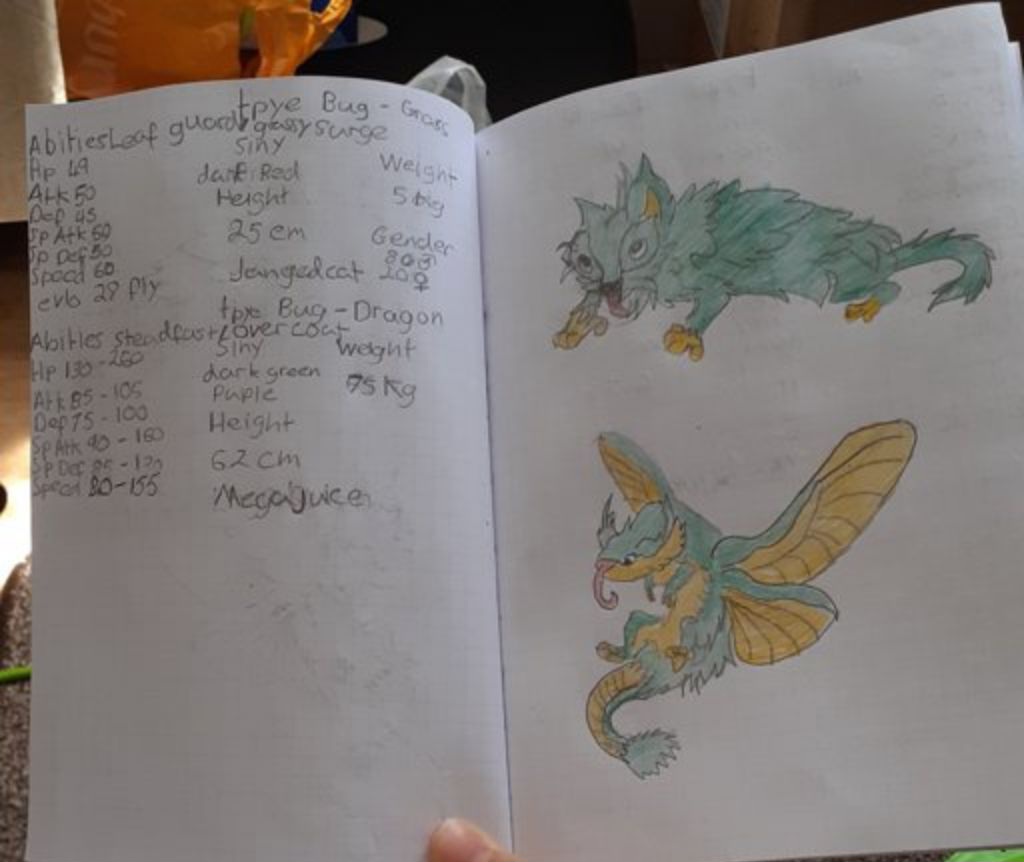 tpye Bug - Grass
Abities Leaf guard grassy surge
Siny
Hp 49
dark Red
Weight
Atk 50
Height
5
Def 45
Sp Atk 60
25 cm
Gender
Sp Def 50
80
Speed 60
Jangedcat 20 ♀
evo 28 Ply
tpye Bug - Dragon
Abities steadfast overcoat
Siny
weight
Hp 130 - 260
dark green
75 Kg
Atk 85 - 105
Puple
Def 75 - 100
Height
Sp Atk 90 - 160
62 cm
Speed 80 - 155
Megajuice